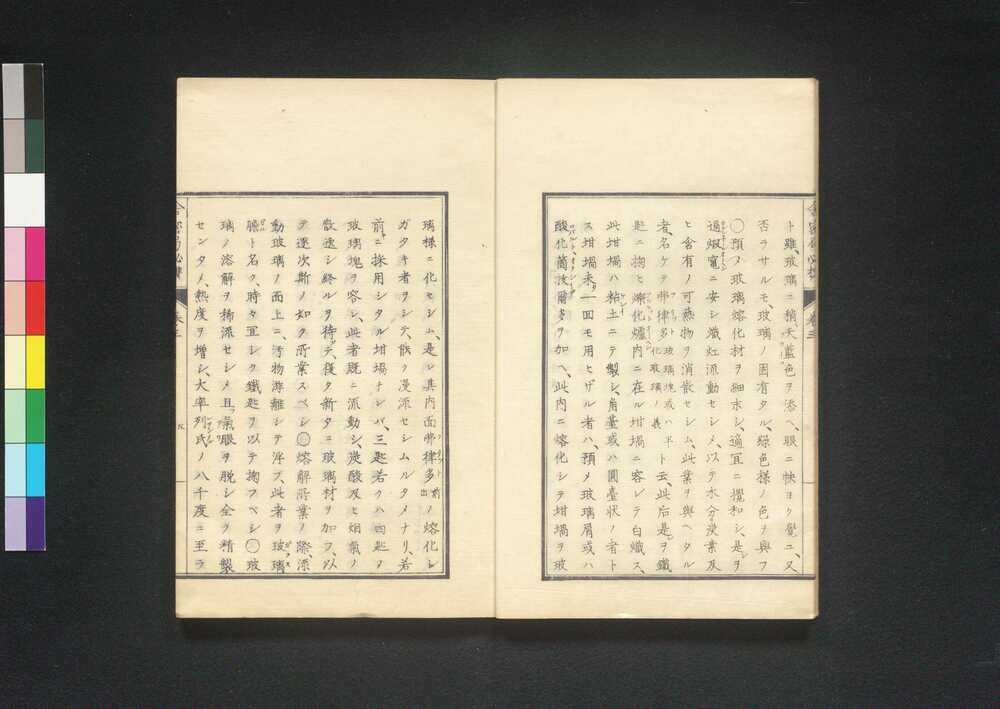 ト雖、玻璃ニ稍天藍色ヲ添ヘ、眼ニ快ヨク覺ニ、又
否ラサルモ、玻璃ノ固有タル、綠色様ノ色ヲ與フ
○預メ玻璃熔化材ヲ細末シ、適宜ニ攪和シ、是ヲ
過煆竃ニ安シ熾灶流動セシメ、以テ水分炭業及
ヒ含有ノ可燕物ヲ消散セシム、此業ヲ興ヘタル
者、名ケテ弗律多玻璃塊或ハ半化玻璃ノ義ト云、此后是ヲ鐵
匙ニ掬ヒ爍化爐内ニ在ル坩堝ニ容レテ白熾ス、
此坩堝ハ粘土ニテ製シ、角臺或ハ圓臺狀ノ者トス
ス坩堝未一回モ用ヒザル者ハ、預メ玻璃屑或ハ
酸化箇拔爾多ヲ加ヘ、此内ニ熔化シテ坩堝ヲ玻
璃様ニ化セシム、是レ其内面弗律多前出ノ熔化シ
ガタキ者ヲシテ、能ク漫添セシムルタメナリ、若
前ニ採用シタル坩堝ナレバ、三匙若クハ四匙ヲ
玻璃塊ヲ容レ、此者既ニ流動シ、炭酸及ヒ烟氣ノ
歡逸シ終ルヲ待テ、復タ新タニ玻璃材ヲ加フ、以
テ逐次斯ノ如ク所業スベシ○熔解所業ノ際、添
動玻璃ノ面上ニ、汚物游離シテ浮ブ、此者ヲ玻璃
膽ト名ク、時々宜シク鐵匙ヲ以テ掬フベシ○玻
璃ノ溶解ヲ稀添セシメ且氣眼ヲ脱シ全ク精製
センタメ、熱度ヲ增シ、大率列氏ノ八千度ニ至ラ